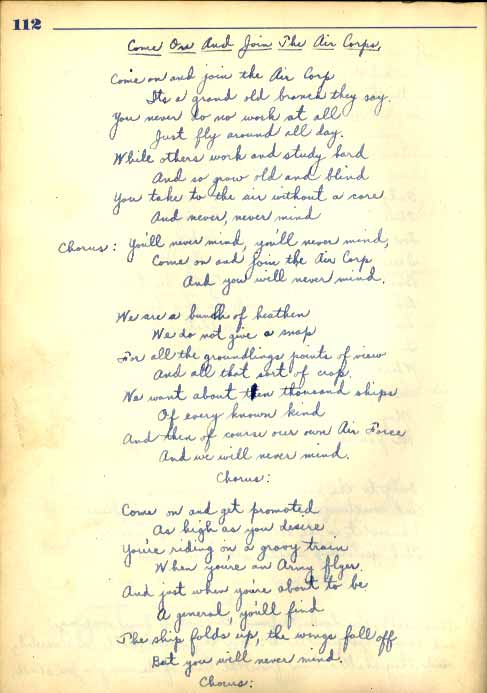 112
Come On And Join The Air Corps,
Come on and join the Air Corp
Its a grand old branch they say.
You never do no work at all
Just fly around all day.
While others work and study hard
And so grow old and blind
You take to the air without a care
And never, never mind
Chorus: You'll never mind, you'll never mind,
Come on and join the Air Corp
And you will never mind.
We are a bunch of heathen
We do not give a snap
For all the groundlings points of view
And all that sort of crap.
We want about ten thousand ships
Of every known kind
And then of course our own Air Force
And we will never mind.
Chorus:
Come on and get promoted
As high as you desire
You're riding on a gravy train
When you're an Army flyer.
And just when you're about to be
A general, you'll find
The ship folds up, the wings fall off
But you will never mind.
Chorus: